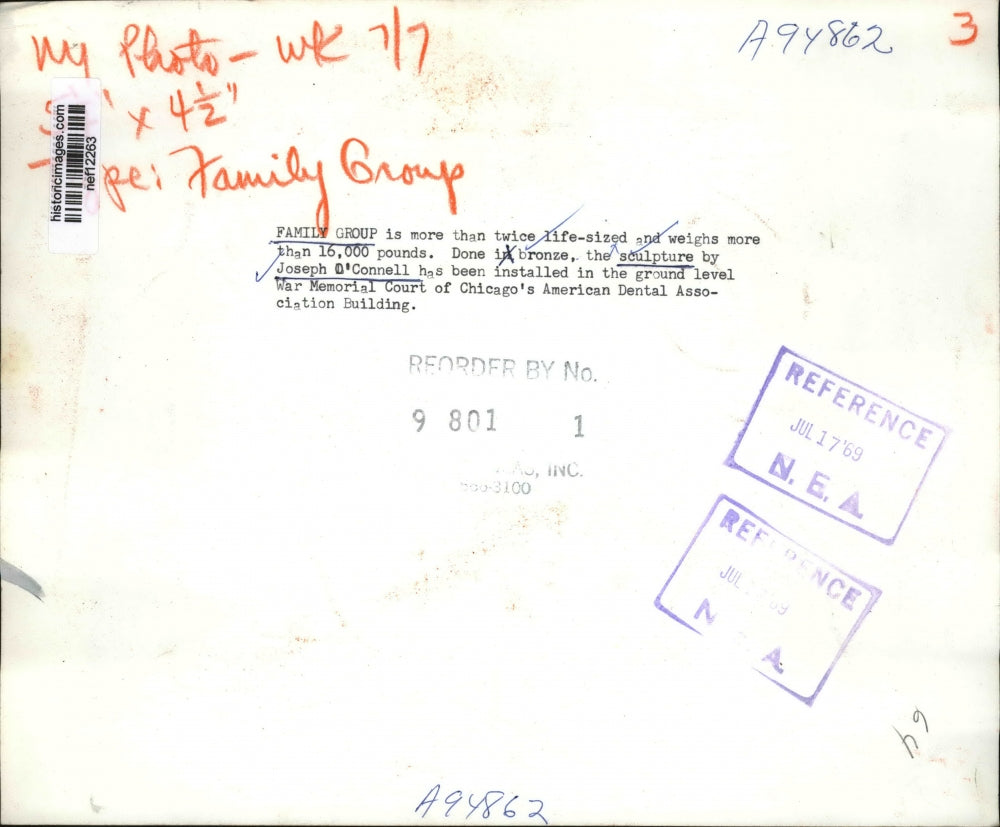 NY Photo - WK 7/7
A94862
3
x 4½"
historicimages.com
nef12263
pe: Family Group
FAMILY GROUP is more than twice life-sized and weighs more
than 16,000 pounds. Done in bronze, the sculpture by
Joseph O'Connell has been installed in the ground level
War Memorial Court of Chicago's American Dental Asso-
ciation Building.
REORDER BY No.
9 801 1
INC.
3100
REFERENCE
JUL 17 '69
N. E. A.
REFERENCE
JUL 69
N A.
64
A94862